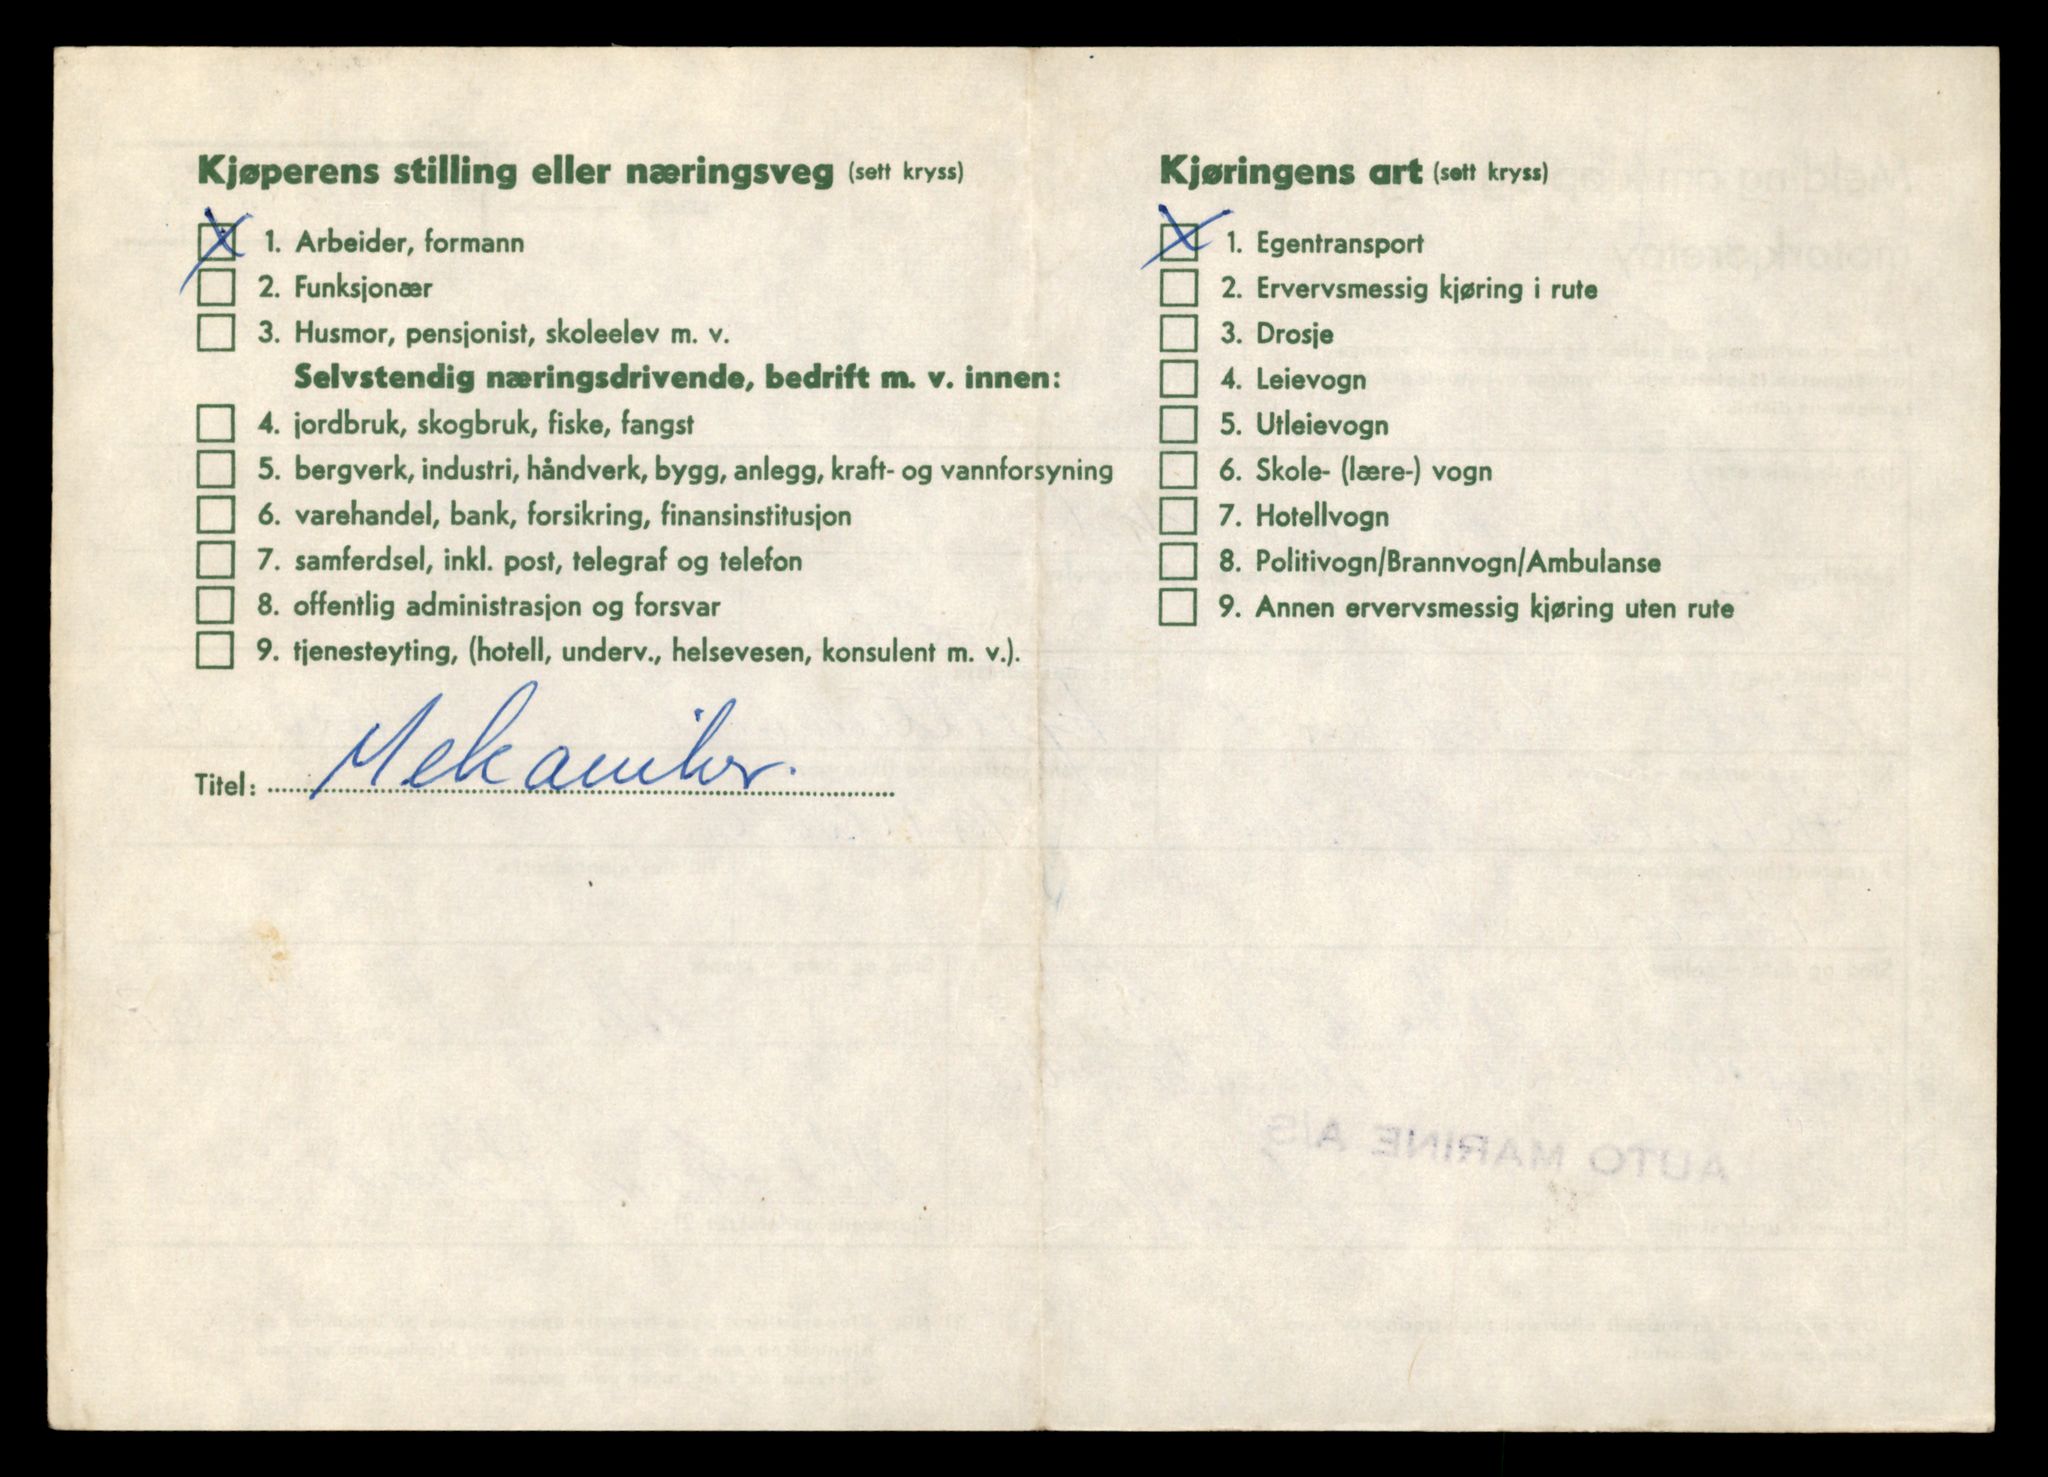 Kjøperens stilling eller næringsveg (sett kryss)
X 1. Arbeider, formann
2. Funksjonær
3. Husmor, pensjonist, skoleelev m. v.
Selvstendig næringsdrivende, bedrift m. v. innen:
4. jordbruk, skogbruk, fiske, fangst
5. bergverk, industri, håndverk, bygg, anlegg, kraft- og vannforsyning
6. varehandel, bank, forsikring, finansinstitusjon
7. samferdsel, inkl. post, telegraf og telefon
8. offentlig administrasjon og forsvar
9. tjenesteyting, (hotell, underv., helsevesen, konsulent m. v.).
Titel: Mekaniker.
Kjøringens art (sett kryss)
X 1. Egentransport
2. Ervervsmessig kjøring i rute
3. Drosje
4. Leievogn
5. Utleievogn
6. Skole- (lære-) vogn
7. Hotellvogn
8. Politivogn/Brannvogn/Ambulanse
9. Annen ervervsmessig kjøring uten rute
AUTO MARINE A/S